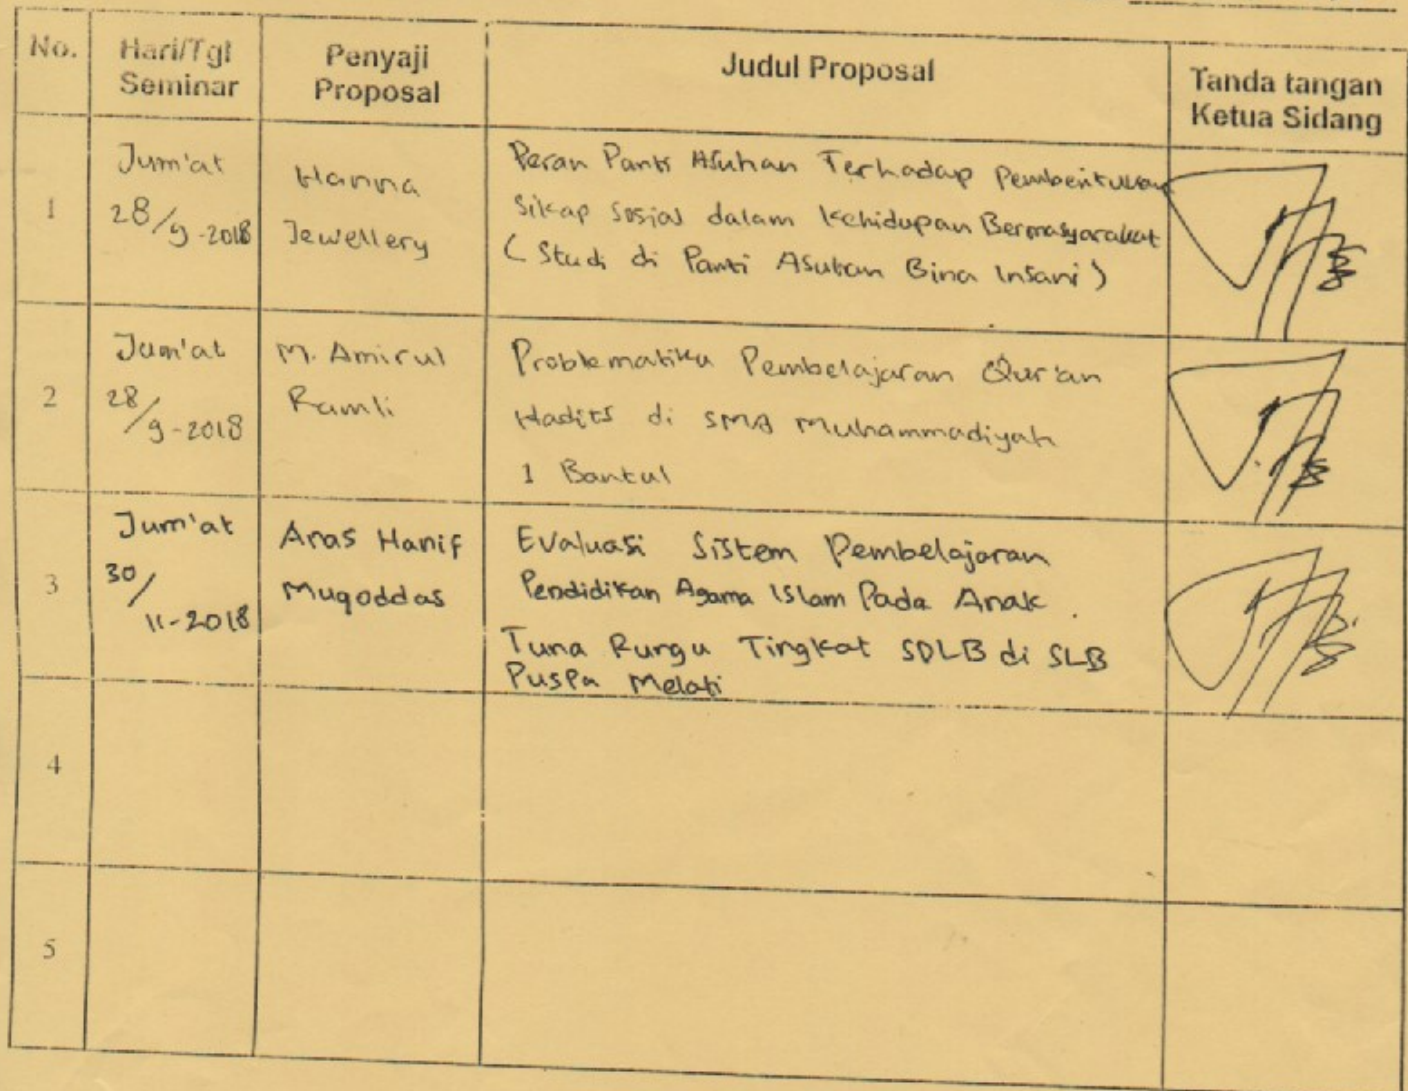 No. Hari/Tgl Seminar Penyaji Proposal Judul Proposal Tanda tangan Ketua Sidang
1
Jum'at
28/9-2018
Hanna
Jewellery
Peran Panti Asuhan Terhadap Pembentukan
Sikap Sosial dalam Kehidupan Bermasyarakat
(Studi di Panti Asuhan Bina Insani)
2
Jum'at
28/9-2018
M. Amirul
Ramli
Problematika Pembelajaran Qur'an
Hadits di SMA Muhammadiyah
1 Bantul
3
Jum'at
30/11-2018
Anas Hanif
Muqoddas
Evaluasi Sistem Pembelajaran
Pendidikan Agama Islam Pada Anak
Tuna Rungu Tingkat SDLB di SLB
Puspa Melati
4
5